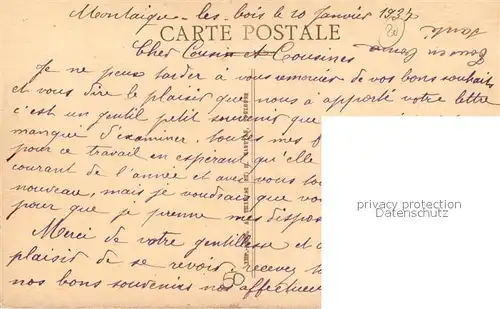 Montaigu-les-bois le 20 Janvier 1937
CARTE POSTALE
Cher Cousin et Cousines
Je ne peux tarder à vous remercier de vos bons souhaits
et vous dire le plaisir que nous a apporté votre lettre
c'est un gentil petit souvenir que
manque d'examiner, toutes mes f
pour ce travail en espérant qu'elle
courant de l'année et avec vous tou
nouveau, mais je voudrais que vou
pour que je prenne mes dispos
Merci de votre gentillesse et a
plaisir de se revoir, recevez
nos bons souvenirs nos affectueu
50
privacy protection
Datenschutz